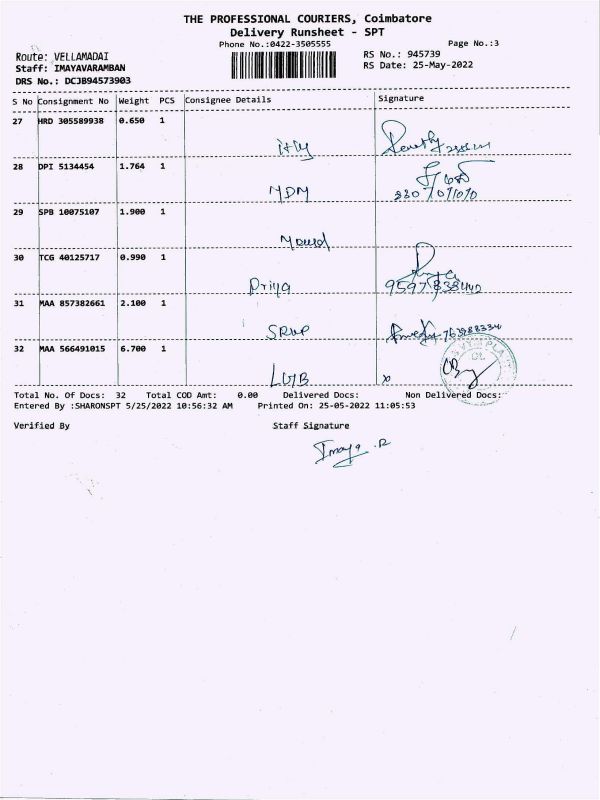 THE PROFESSIONAL COURIERS, Coimbatore
Delivery Runsheet - SPT
Phone No.:0422-3505555 Page No.:3
Route: VELLAMADAI RS No.: 945739
Staff: IMAYAVARAMBAN RS Date: 25-May-2022
DRS No.: DCJB94573903
S No Consignment No Weight PCS Consignee Details Signature
27 HRD 305589938 0.650 1
28 DPI 5134454 1.764 1 MDM
29 SPB 10075107 1.900 1
30 TCG 40125717 0.990 1 Priya
31 MAA 857382661 2.100 1
32 MAA 566491015 6.700 1 x
Total No. Of Docs: 32 Total COD Amt: 0.00 Delivered Docs: Non Delivered Docs:
Entered By :SHARONSPT 5/25/2022 10:56:32 AM Printed On: 25-05-2022 11:05:53
Verified By Staff Signature
Imaya .R